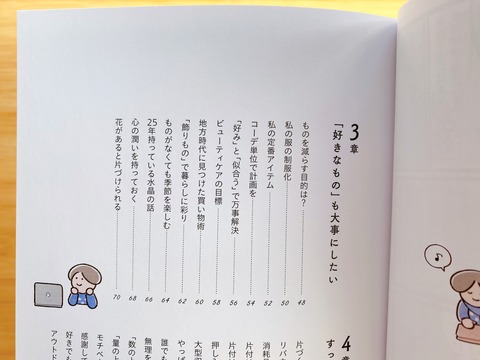 3章
「好きなもの」も大事にしたい
ものを減らす目的は？ 48
私の服の制服化 50
私の定番アイテム 52
コーデ単位で計画を 54
「好み」と「似合う」で万事解決 56
ビューティケアの目標 58
地方時代に見つけた買い物術 60
「飾りもの」で暮らしに彩り 62
ものがなくても季節を楽しむ 64
25年持っている水晶の話 66
心の潤いを持っておく 68
花があると片づけられる 70
4章
すっ
片づく
リバウ
消耗
片付
片付
押し
大型の
やっぱ
誰でも
無理を
「数のル
「量のし
モチベー
感謝して
好きでも
アウトド